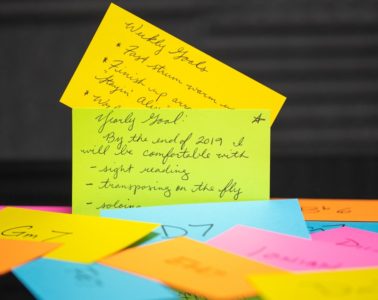 Weekly Goals
* Fast strum warm u
* Finish up arr
"Stayin' Aliv
* W
Yearly Goal:
By the end of 2019 I
will be comfortable with
- sight reading
- transposing on the fly
- soloin
Gm7
D7
Ionian